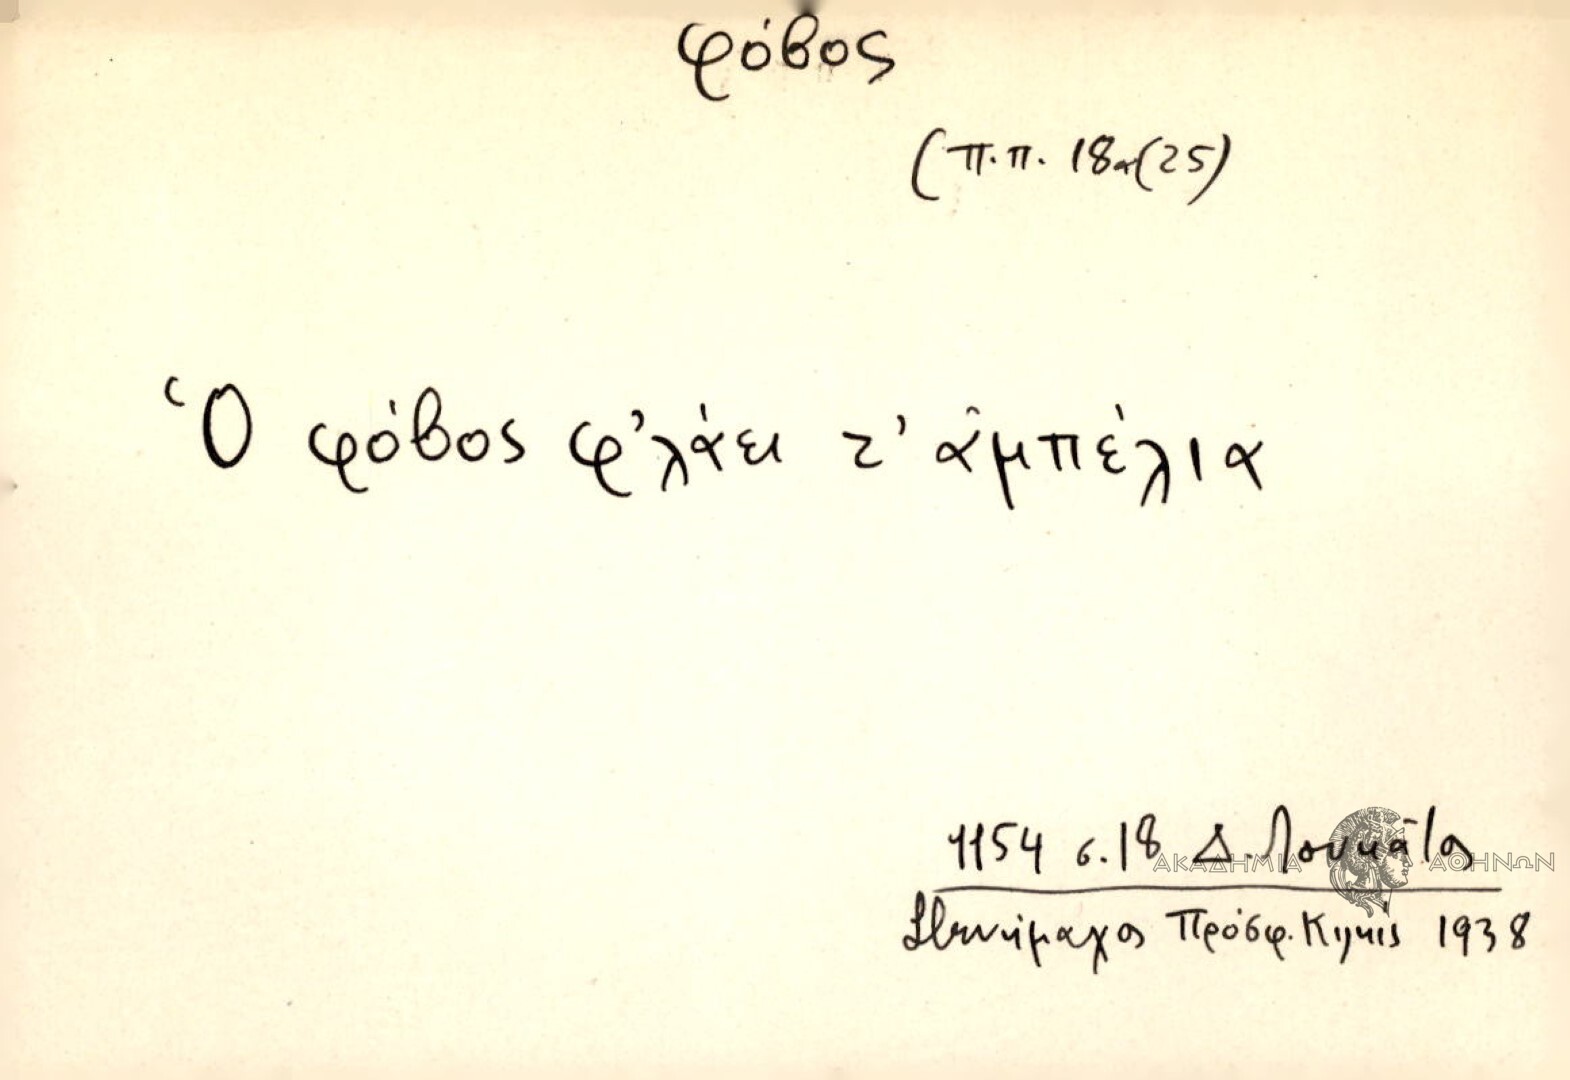 φόβος
(π.π. 18α(25)
Ὁ φόβος φ'λάει τ' ἀμπέλια
1154 σ. 18 Δ. Λουκᾶτος
ΑΚΑΔΗΜΙΑ ΑΘΗΝΩΝ
Στενήμαχος Πρόσφ. Κιλκίς 1938